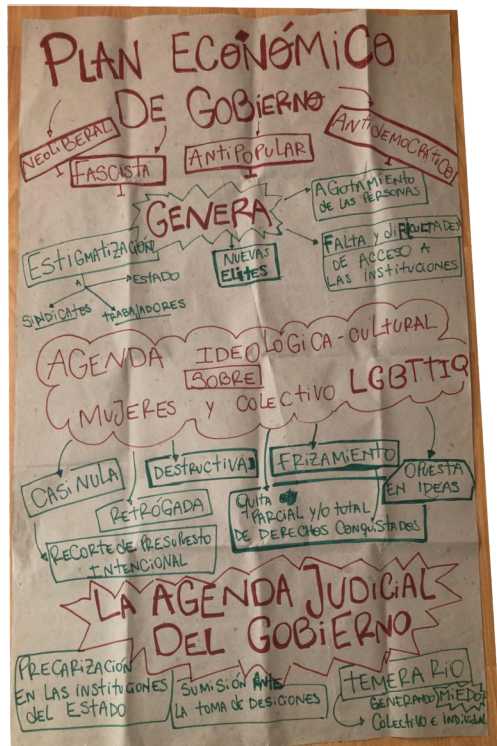 PLAN ECONÓMICO
DE GOBIERNO
NEOLIBERAL
FASCISTA
ANTIPOPULAR
ANTIDEMOCRÁTICO
GENERA
AGOTAMIENTO
DE LAS PERSONAS
ESTIGMATIZACIÓN
ESTADO
SINDICATOS
TRABAJADORES
NUEVAS
ELITES
FALTA y diFICULTADES
DE ACCESO A
LAS INSTITUCIONES
AGENDA IDEOLÓGICA-CULTURAL
SOBRE
MUJERES Y COLECTIVO LGBTTIQ
CASI NULA
RETRÓGADA
DESTRUCTIVA
FRIZAMIENTO
OPUESTA
EN IDEAS
RECORTE DE PRESUPUESTO
INTENCIONAL
QUITA
PARCIAL Y/O TOTAL
DE DERECHOS CONQUISTADOS
LA AGENDA JUDICIAL
DEL GOBIERNO
PRECARIZACIÓN
EN LAS INSTITUCIONES
DEL ESTADO
SUMISIÓN ANTE
LA TOMA DE DESICIONES
TEMERARIO
GENERANDO MIEDO
COLECTIVO E INDIVIDUAL